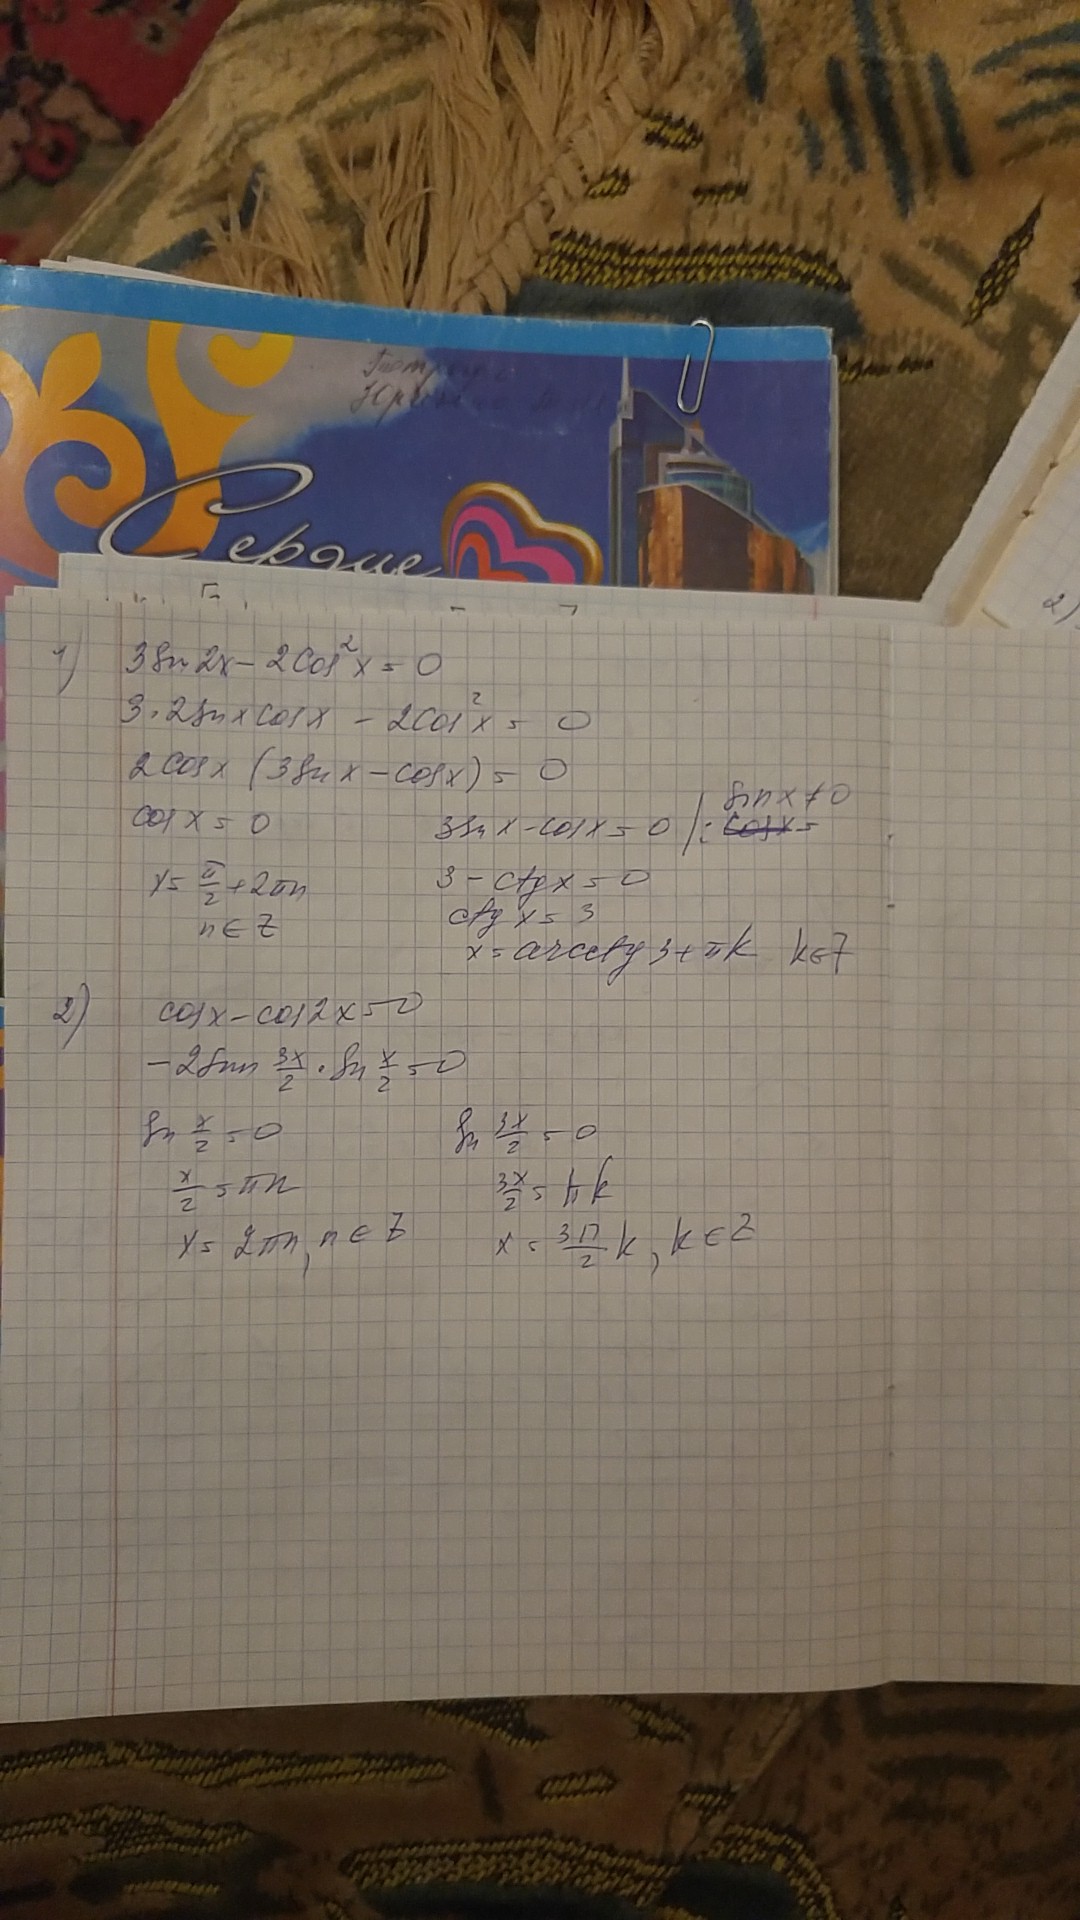 Сердце
1) 3sin2x - 2cos²x = 0
3·2sinxcosx - 2cos²x = 0
2cosx (3sinx - cosx) = 0
cosx = 0
x = π/2 + 2πn
n ∈ Z
3sinx - cosx = 0 | : sinx ≠ 0
3 - ctgx = 0
ctgx = 3
x = arcctg3 + πk k ∈ Z
2) cosx - cos2x = 0
-2sin 3x/2 · sin x/2 = 0
sin x/2 = 0
x/2 = πn
x = 2πn, n ∈ Z
sin 3x/2 = 0
3x/2 = πk
x = 3π/2 k, k ∈ Z
2)